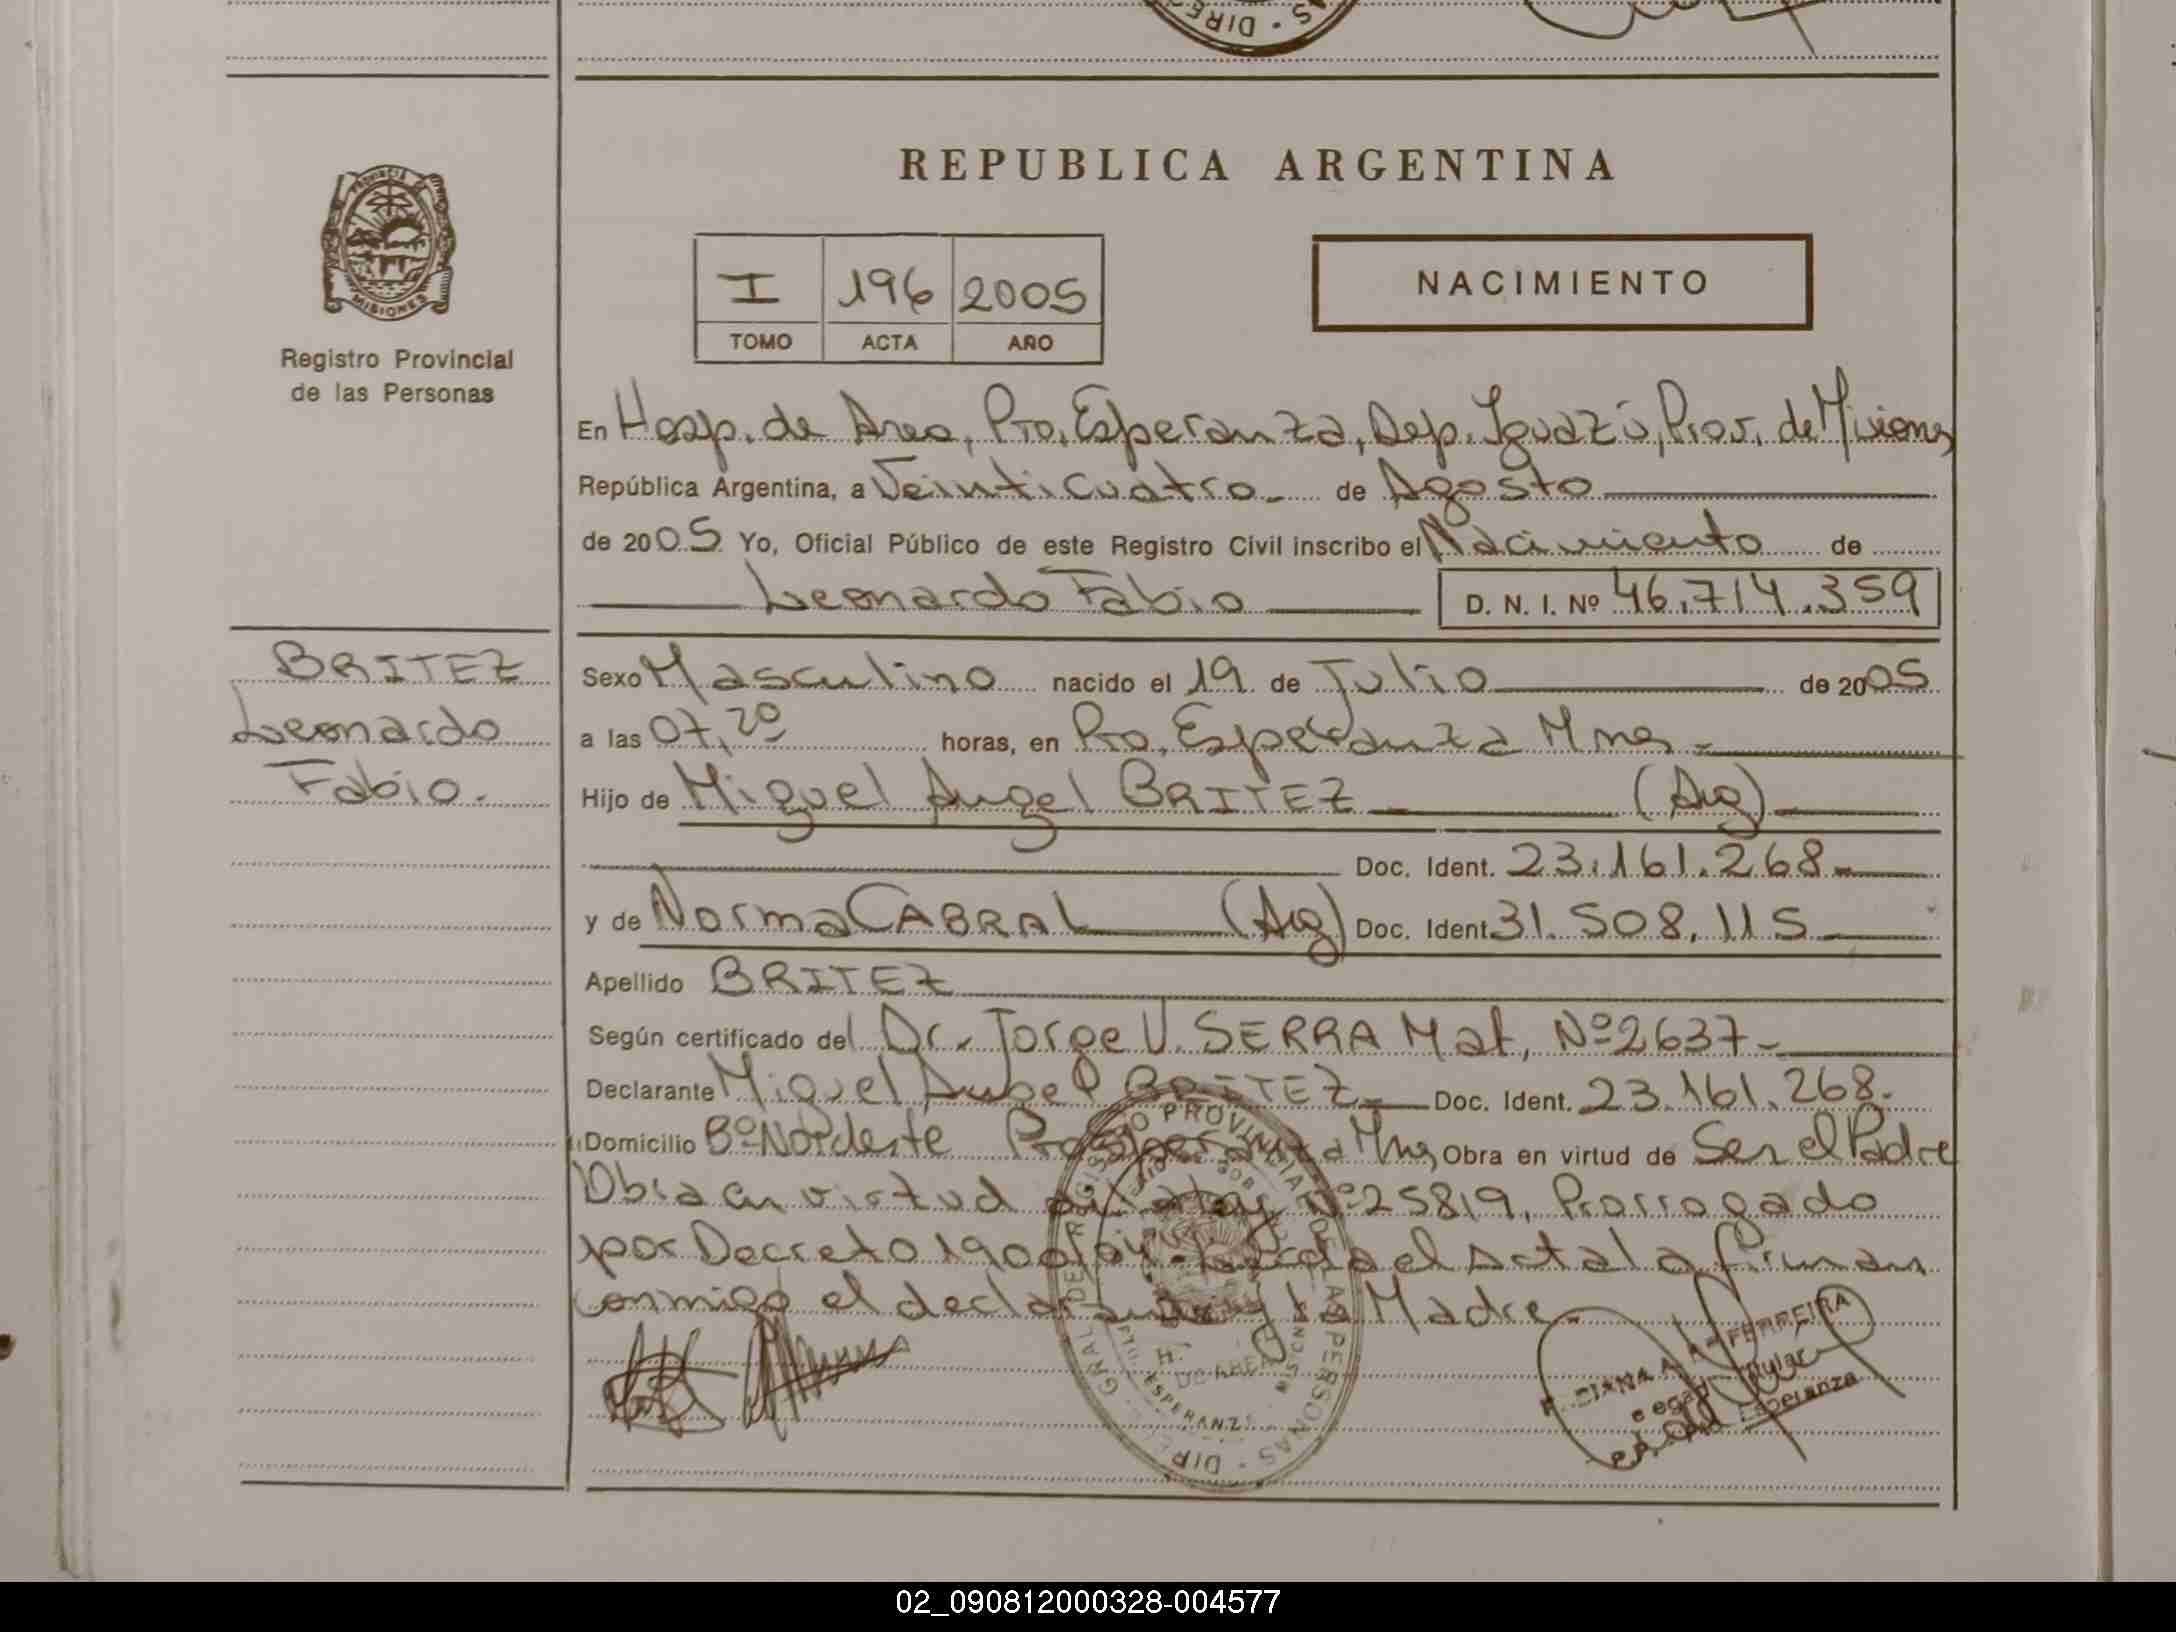 REPUBLICA ARGENTINA
PROVINCIA DE
MISIONES
Registro Provincial
de las Personas
I 196 2005
TOMO ACTA AÑO
NACIMIENTO
En Hosp. de Area, Pto. Esperanza, Dep. Iguazú, Prov. de Misiones
República Argentina, a Veinticuatro de Agosto
de 2005 Yo, Oficial Público de este Registro Civil inscribo el Nacimiento de
Leonardo Fabio D. N. I. Nº 46.714.359
BRITEZ
Leonardo
Fabio.
Sexo Masculino nacido el 19 de Julio de 2005
a las 07,20 horas, en Pto. Esperanza Mnes
Hijo de Miguel Angel BRITEZ (Arg)
Doc. Ident. 23.161.268
y de Norma CABRAL (Arg) Doc. Ident. 31.508.115
Apellido BRITEZ
Según certificado del Dr. Jorge V. SERRA Mat. Nº 2637
Declarante Miguel Angel BRITEZ Doc. Ident. 23.161.268.
Domicilio Bº Nordeste Pto Esperanza Mnes Obra en virtud de Ser el Padre
Obra en virtud Ley Nº 25819, Prorrogado
por Decreto 1900/04 el Acta la firman
conmigo el declarante y la Madre
REGISTRO PROVINCIAL DE LAS PERSONAS · DIR GRAL DE
H.
DE AREA
ESPERANZA
MISIONES
FERREIRA
Titular
Esperanza
DIREC
02_090812000328-004577